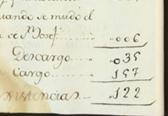 quando se mudó el
a de Sn. Josef ........ 006
Descargo ........ 035
Cargo ........ 157
existencias ... 122